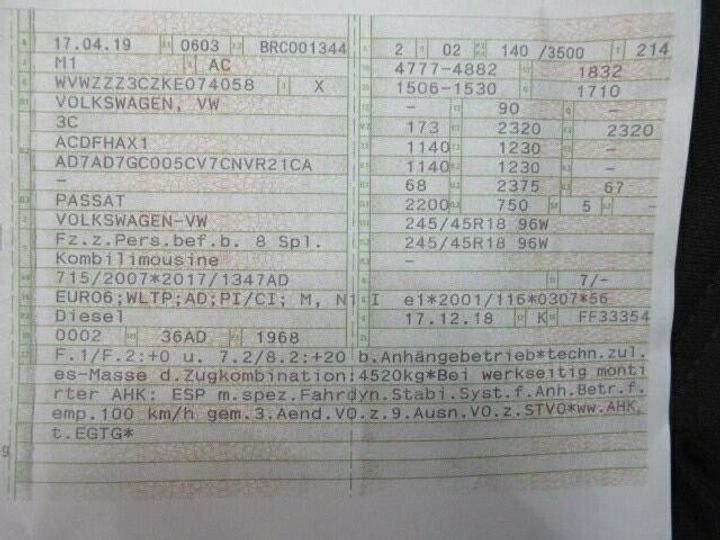 17.04.19 0603 BRC001344 2 02 140 /3500 214
M1 AC 4777-4882 1832
WVWZZZ3CZKE074058 X 1506-1530 1710
VOLKSWAGEN, VW - 90 -
3C 173 2320 2320
ACDFHAX1 1140 1230 -
AD7AD7GC005CV7CNVR21CA 1140 1230 -
- 68 2375 67
PASSAT 2200 750 5 -
VOLKSWAGEN-VW 245/45R18 96W
Fz.z.Pers.bef.b. 8 Spl. 245/45R18 96W
Kombilimousine -
715/2007*2017/1347AD 7/-
EURO6;WLTP;AD;PI/CI; M, N1 I e1*2001/116*0307*56
Diesel 17.12.18 K FF33354
0002 36AD 1968
F.1/F.2:+0 u. 7.2/8.2:+20 b.Anhängebetrieb*techn.zul.
es-Masse d.Zugkombination:4520kg*Bei werkseitig monti
rter AHK: ESP m.spez.Fahrdyn.Stabi.Syst.f.Anh.Betr.f.
emp.100 km/h gem.3.Aend.VO.z.9.Ausn.VO.z.STVO*ww.AHK
t.EGTG*
g